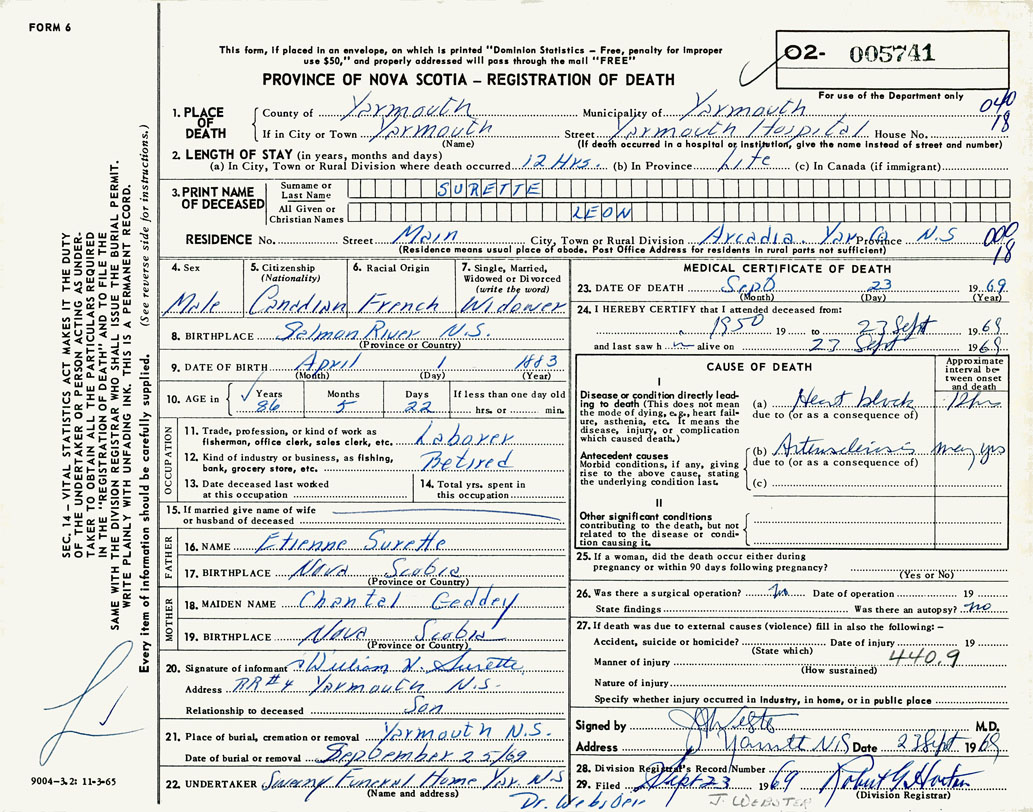 FORM 6
This form, if placed in an envelope, on which is printed "Dominion Statistics – Free, penalty for improper
use $50," and properly addressed will pass through the mail "FREE"
O2- 005741
PROVINCE OF NOVA SCOTIA – REGISTRATION OF DEATH
For use of the Department only
040
18
1. PLACE OF DEATH
County of Yarmouth Municipality of Yarmouth
If in City or Town Yarmouth Street Yarmouth Hospital House No.
(Name) (If death occurred in a hospital or institution, give the name instead of street and number)
2. LENGTH OF STAY (in years, months and days)
(a) In City, Town or Rural Division where death occurred 12 Hrs. (b) In Province Life (c) In Canada (if immigrant)
3. PRINT NAME OF DECEASED
Surname or Last Name SURETTE
All Given or Christian Names LEON
RESIDENCE No. Street Main City, Town or Rural Division Arcadia. Yar Co. Province N.S
(Residence means usual place of abode. Post Office Address for residents in rural parts not sufficient)
000
18
4. Sex Male
5. Citizenship (Nationality) Canadian
6. Racial Origin French
7. Single, Married, Widowed or Divorced (write the word) Widower
8. BIRTHPLACE Salmon River N.S.
(Province or Country)
9. DATE OF BIRTH April 1 1883
(Month) (Day) (Year)
10. AGE in Years 86 Months 5 Days 22 If less than one day old hrs. or min.
OCCUPATION
11. Trade, profession, or kind of work as fisherman, office clerk, sales clerk, etc. Laborer
12. Kind of industry or business, as fishing, bank, grocery store, etc. Retired
13. Date deceased last worked at this occupation
14. Total yrs. spent in this occupation
15. If married give name of wife or husband of deceased
FATHER
16. NAME Etienne Surette
17. BIRTHPLACE Nova Scotia
(Province or Country)
MOTHER
18. MAIDEN NAME Chantal Geddey
19. BIRTHPLACE Nova Scotia
(Province or Country)
20. Signature of informant William H. Surette
Address RR#4 Yarmouth N.S.
Relationship to deceased Son
21. Place of burial, cremation or removal Yarmouth N.S.
Date of burial or removal September 25/69
22. UNDERTAKER Sweeny Funeral Home Yar. N.S
(Name and address)
MEDICAL CERTIFICATE OF DEATH
23. DATE OF DEATH Sept 23 1969
(Month) (Day) (Year)
24. I HEREBY CERTIFY that I attended deceased from:
1950 19 to 23 Sept 1969
and last saw h m alive on 23 Sept 1969
CAUSE OF DEATH
Approximate interval between onset and death
I
Disease or condition directly leading to death (This does not mean the mode of dying, e.g., heart failure, asthenia, etc. It means the disease, injury, or complication which caused death.)
(a) Heart block 12 hrs
due to (or as a consequence of)
Antecedent causes
Morbid conditions, if any, giving rise to the above cause, stating the underlying condition last.
(b) Arteriosclerosis many yrs
due to (or as a consequence of)
(c)
II
Other significant conditions contributing to the death, but not related to the disease or condition causing it.
25. If a woman, did the death occur either during pregnancy or within 90 days following pregnancy?
(Yes or No)
26. Was there a surgical operation? no Date of operation 19
State findings Was there an autopsy? no
27. If death was due to external causes (violence) fill in also the following: –
Accident, suicide or homicide? Date of injury 19
(State which)
Manner of injury 440.9
(How sustained)
Nature of injury
Specify whether injury occurred in industry, in home, or in public place
Signed by M.D.
Address Yarmouth N.S Date 23 Sept 1969
28. Division Registrar's Record Number
29. Filed Sept 23 1969 Robert G. Horton
(Division Registrar)
Dr. Webster
J. WEBSTER
SEC. 14 – VITAL STATISTICS ACT MAKES IT THE DUTY
OF THE UNDERTAKER OR PERSON ACTING AS UNDER-
TAKER TO OBTAIN ALL THE PARTICULARS REQUIRED
IN THE "REGISTRATION OF DEATH" AND TO FILE THE
SAME WITH THE DIVISION REGISTRAR WHO SHALL ISSUE THE BURIAL PERMIT.
WRITE PLAINLY WITH UNFADING INK. THIS IS A PERMANENT RECORD.
Every item of information should be carefully supplied. (See reverse side for instructions.)
9004–3.2: 11-3-65